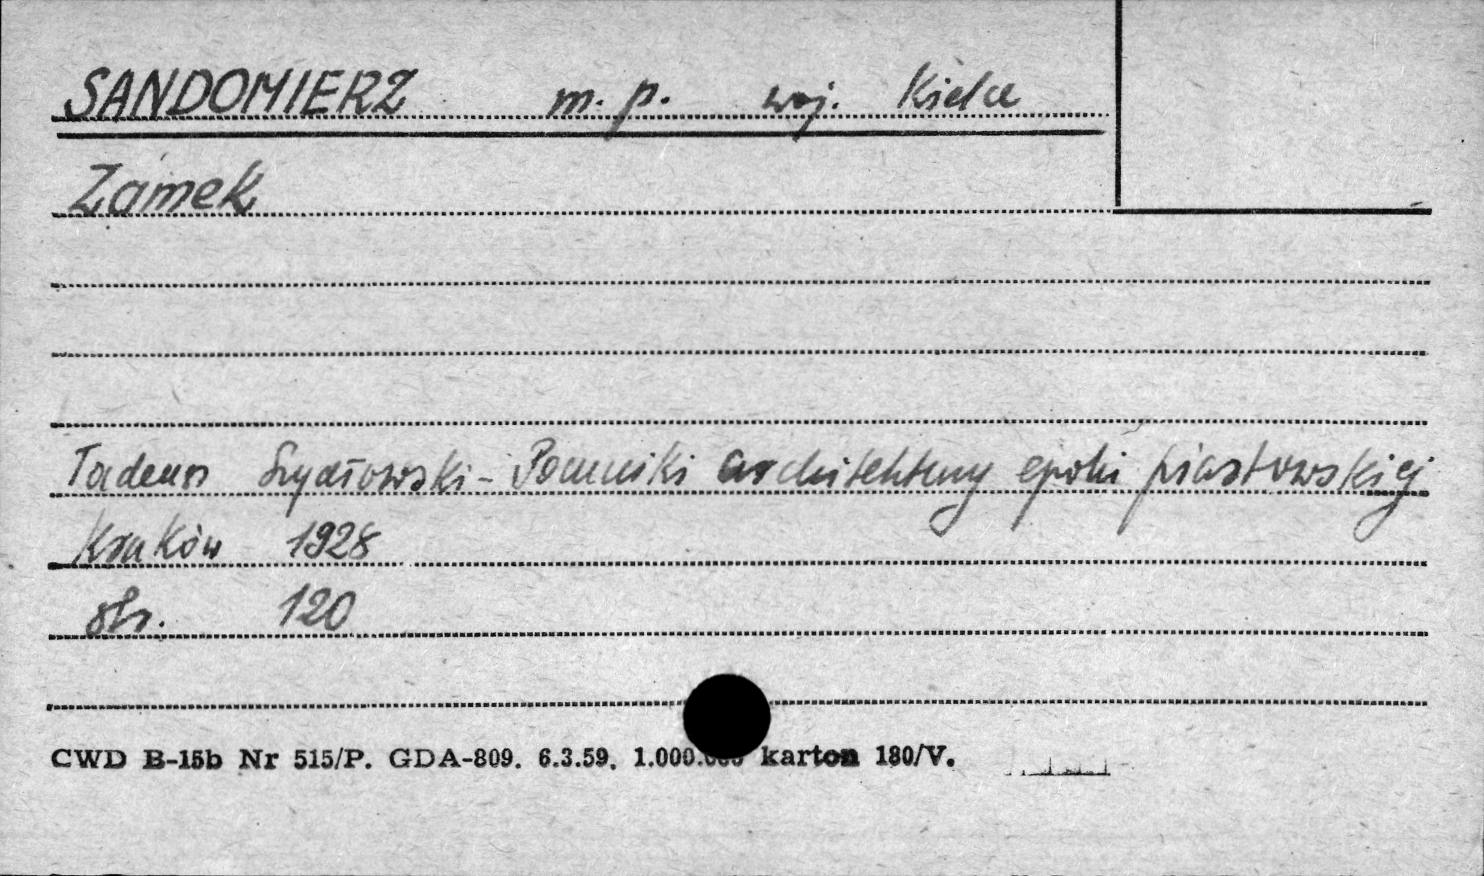 SANDOMIERZ m. p. woj. Kielce
Zamek
Tadeusz Szydłowski - Pomniki architektury epoki piastowskiej
Kraków 1928
str. 120
CWD B-15b Nr 515/P. GDA-809. 6.3.59. 1.000.000 karton 180/V.